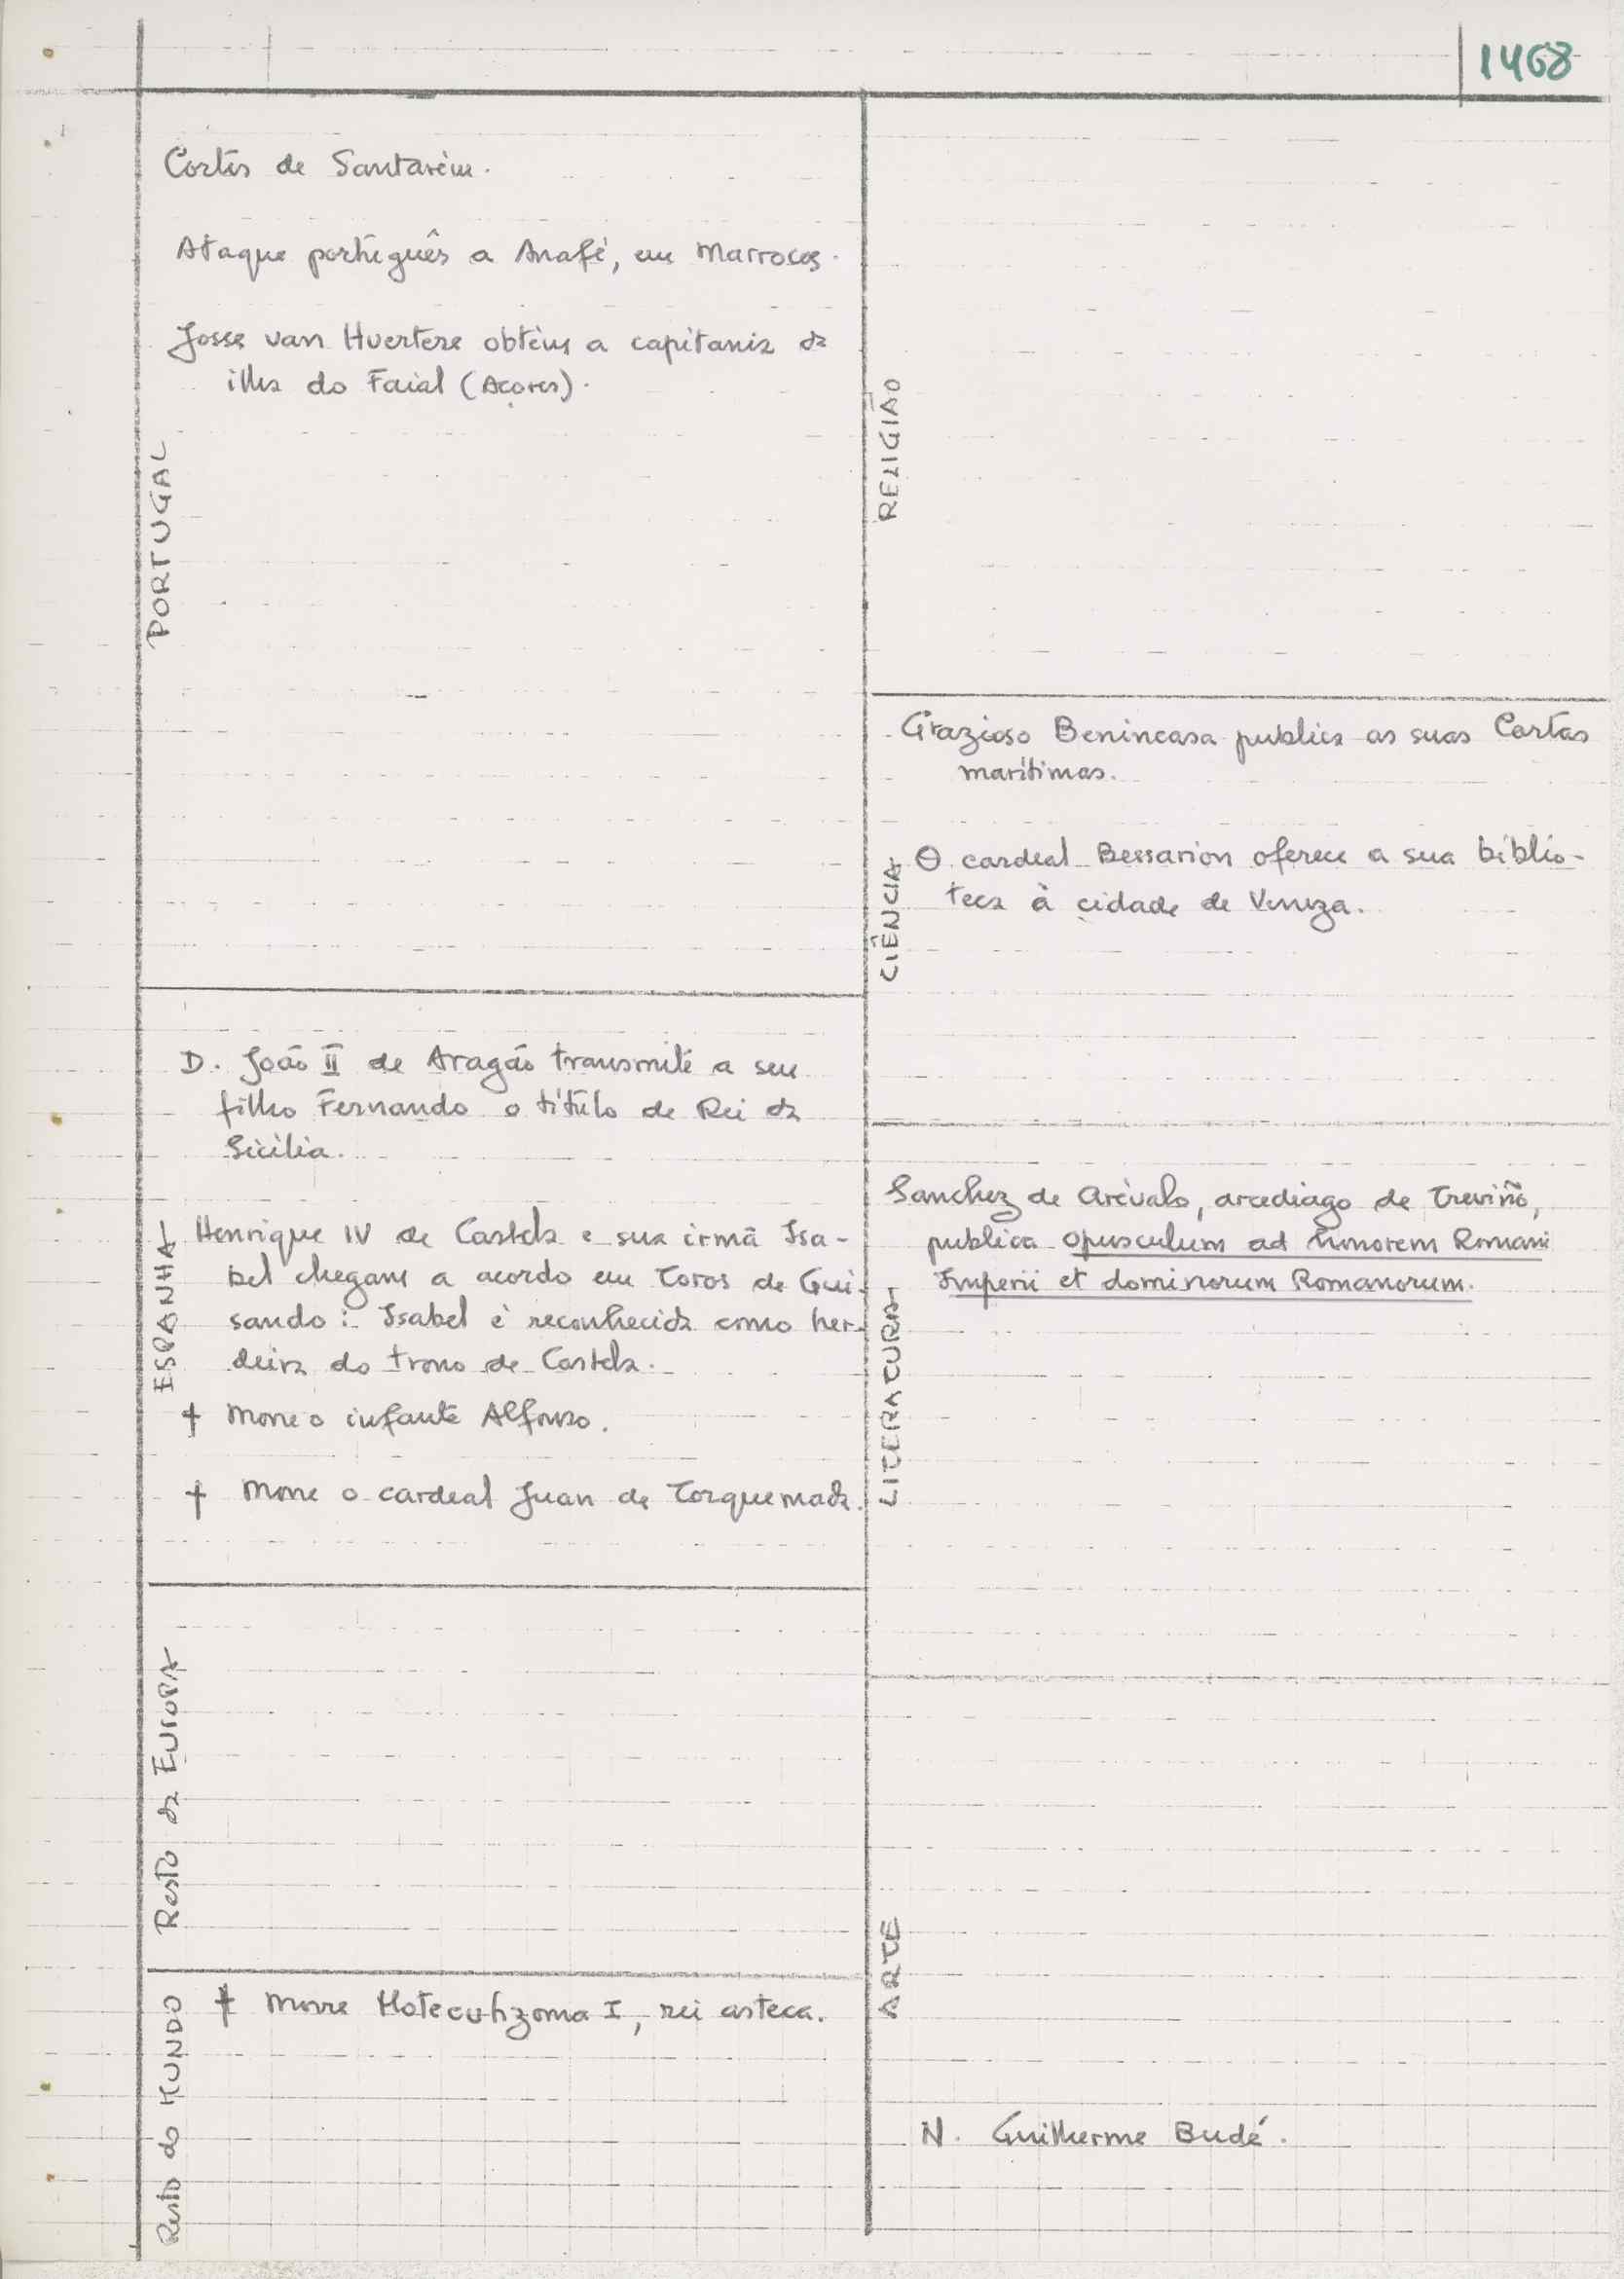 1468
PORTUGAL
Cortes de Santarém.
Ataque português a Anafé, em Marrocos.
Josse van Huertere obtém a capitania da
ilha do Faial (Açores).
ESPANHA
D. João II de Aragão transmite a seu
filho Fernando o título de Rei da
Sicília.
Henrique IV de Castela e sua irmã Isa-
bel chegam a acordo em Toros de Gui-
sando: Isabel é reconhecida como her-
deira do trono de Castela.
† Morre o infante Alfonso.
† Morre o cardeal Juan de Torquemada.
Resto da EUROPA
Resto do MUNDO
† Morre Motecuhzoma I, rei asteca.
RELIGIÃO
CIÊNCIA
Grazioso Benincasa publica as suas Cartas
marítimas.
O cardeal Bessarion oferece a sua biblio-
teca à cidade de Veneza.
LITERATURA
Sanchez de Arévalo, arcediago de Treviño,
publica Opusculum ad honorem Romani
Imperii et dominorum Romanorum.
ARTE
N. Guilherme Budé.